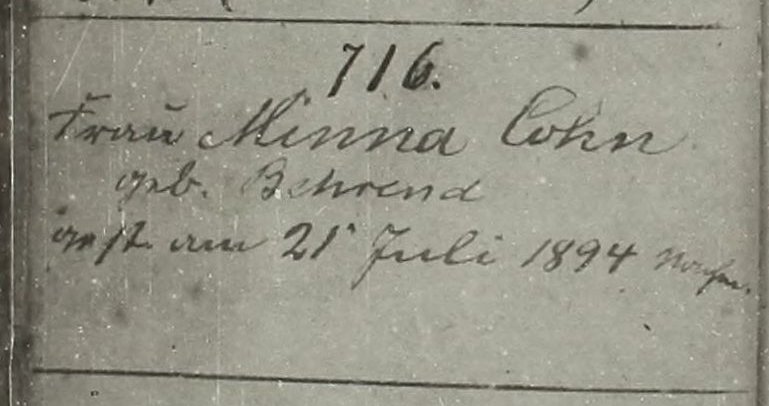 716.
Frau Minna Cohn
geb. Behrend
gest. am 21 Juli 1894